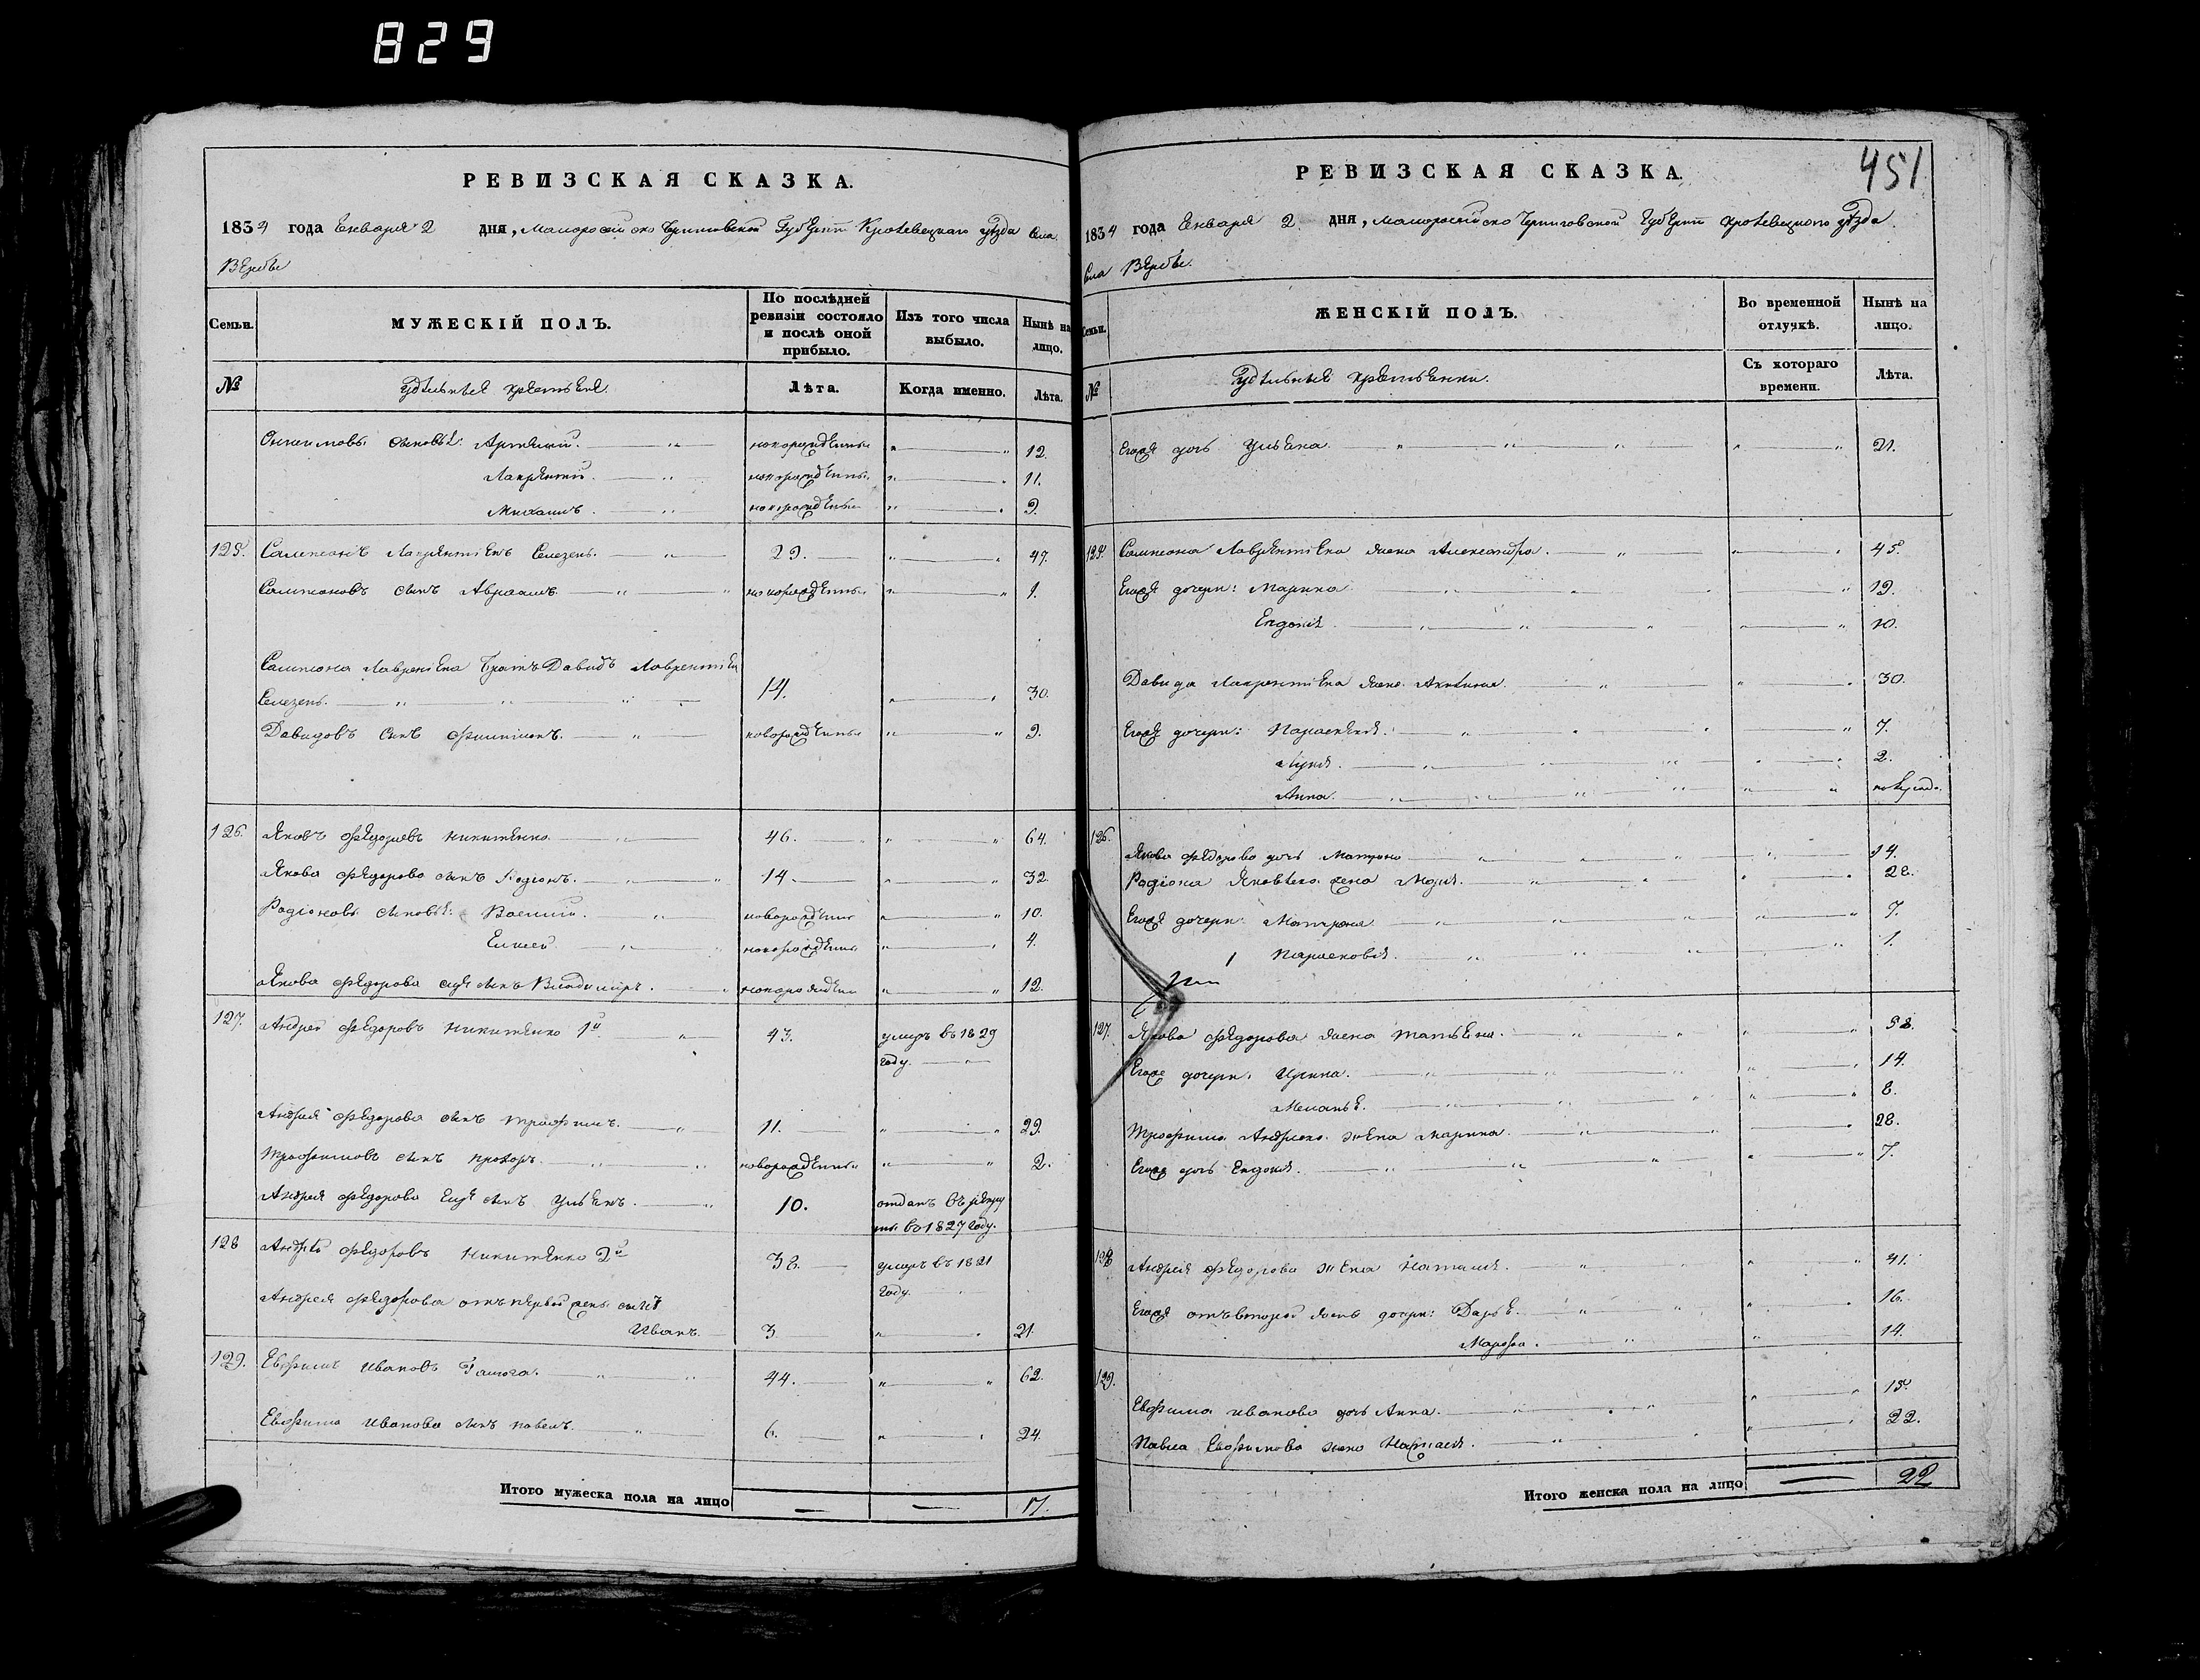 829
РЕВИЗСКАЯ СКАЗКА.
1834 года Января 2 дня, Малоросійско Черниговской Губерніи Кролевецкаго уѣзда Села
Вербы
Семьи.
МУЖЕСКІЙ ПОЛЪ.
По послѣдней ревизіи состояло и послѣ оной прибыло.
Изъ того числа выбыло.
Нынѣ на лицо.
№
Удѣльныя крестьяне.
Лѣта.
Когда именно.
Лѣта.
сыновья: Артемій. новорожденны 12.
Лаврентій. новорожденны 11.
Михаилъ. новорожденны 9.
125. Сампсонъ Лаврентіевъ Селезень. 29. 47.
Сампсоновъ сынъ Авраамъ. новорожденны 1.
Сампсона Лаврентіева братъ Давидъ Лаврентіевъ
Селезень. 14. 30.
Давидовъ сынъ Филимонъ. новорожденны 9.
126. Яковъ Федоровъ Никитенко 46. 64.
Якова Федорова сынъ Родіонъ. 14. 32.
Родіоновы сыновья: Василій. новорожденны 10.
Елисей. новорожденны 4.
Якова Федорова еще сынъ Владиміръ. новорожден 12.
127. Андрей Федоровъ Никитенко 1й 43. умеръ въ 1829
году.
Андрея Федорова сынъ Трофимъ. 11. 29.
Трофимовъ сынъ Прохоръ. новорожденны 2.
Андрея Федорова еще сынъ Ульянъ. 10. отданъ въ рекру
ты въ 1827 году.
128 Андрей Федоровъ Никитенко 2й 38. умеръ въ 1821
году.
Андрея Федорова отъ первой жены сынъ
Иванъ. 3 21.
129. Евфимъ Ивановъ 44. 62.
Евфима Иванова сынъ Павелъ. 6. 24.
Итого мужеска пола на лицо 17.
451
РЕВИЗСКАЯ СКАЗКА.
1834 года Января 2 дня, Малоросійско Черниговской Губерніи Кролевецкаго уѣзда
Села Вербы.
Семьи.
ЖЕНСКІЙ ПОЛЪ.
Во временной отлучкѣ.
Нынѣ на лицо.
№
Удѣльныя крестьянки.
Съ котораго времени.
Лѣта.
Егоже дочь Ульяна. 21.
125. Сампсона Лаврентіева жена Александра. 45.
Егоже дочери: Марина 19.
Евдокія 10.
Давида Лаврентіева жена 30.
Егоже дочери: Параскевія. 7.
2.
Анна. новорожд.
126. Якова Федорова дочь Матрона 14.
Родіона Яковлева жена Марія. 28.
Егоже дочери: Матрона 7.
Парасковія. 1.
127. Якова Федорова жена Татьяна. 58.
Егоже дочери: Ирина. 14.
Меланья. 8.
Трофима Андреева жена Марина. 28.
Егоже дочь Евдокія. 7.
128 Андрея Федорова жена Наталія. 41.
Егоже отъ второй жены дочери: Дарья. 16.
Марфа. 14.
129. Евфима Иванова дочь Анна. 15.
Павла Евфимова жена Наталія. 22.
Итого женска пола на лицо 22